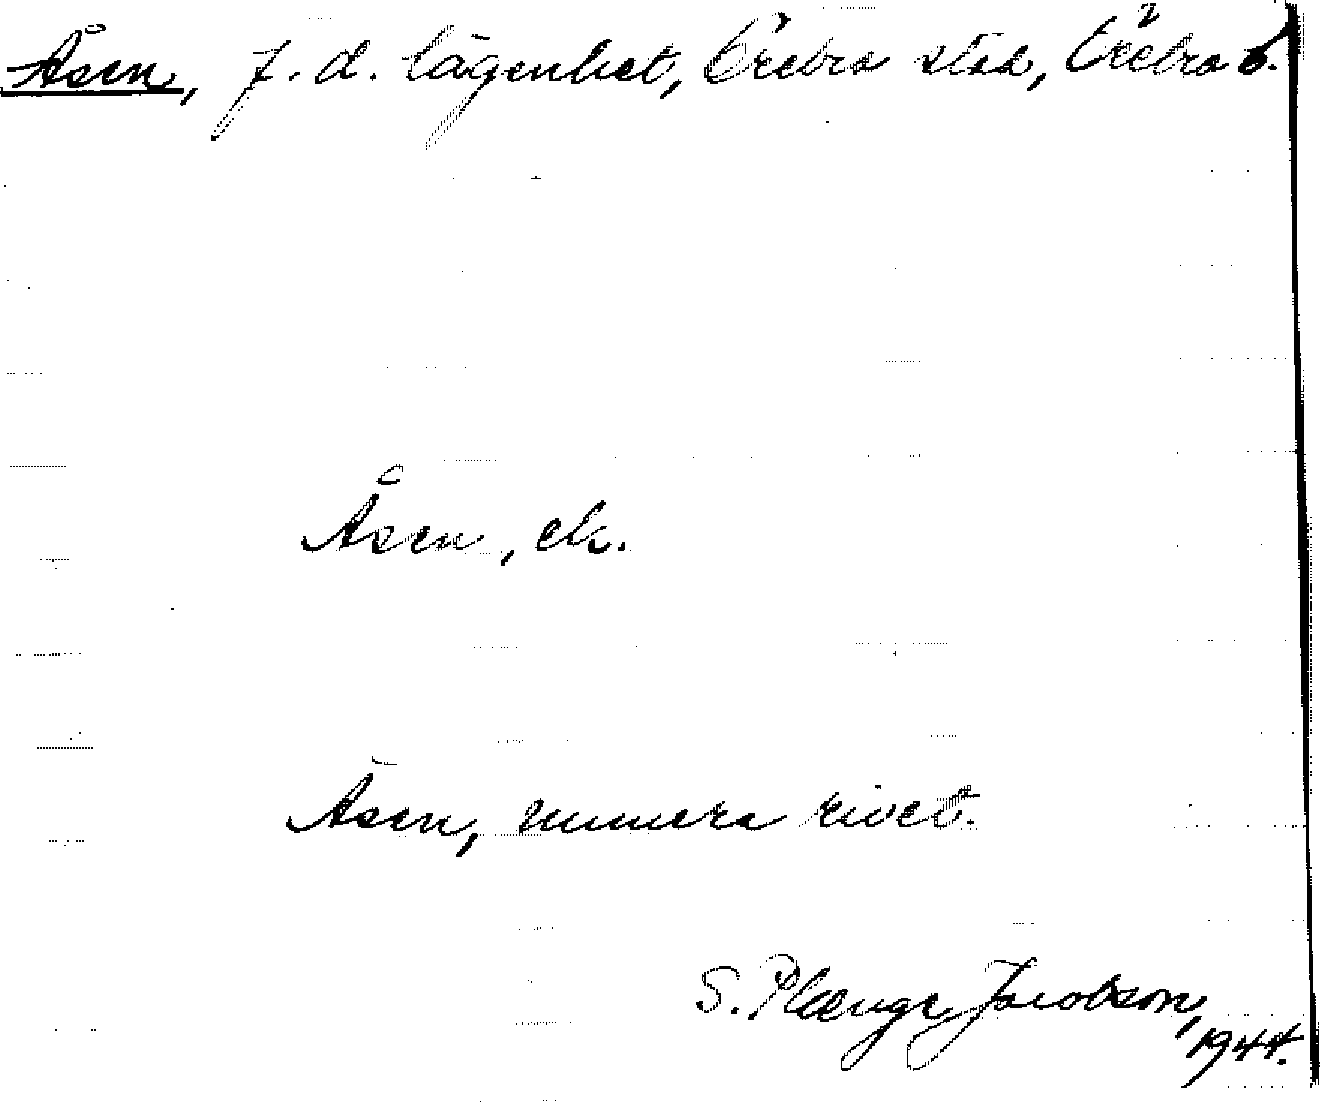 Åsen, f. d. lägenhet, Örebro stad, Örebro l.
Åsen, ek.
Åsen, numera rivet.
S. Plænge Jacobson,
1944.